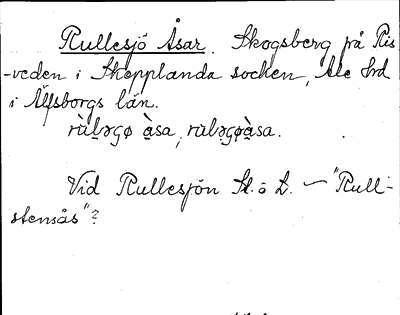 Rullesjö Åsar. Skogsberg på Ris
-veden i Skepplanda socken, Ale hrd
i Älfsborgs län.
rùl̥ǝgø àsa, rùlǝgøàsa.
Vid Rullesjön St. ö L. — "Rull-
stensås"?